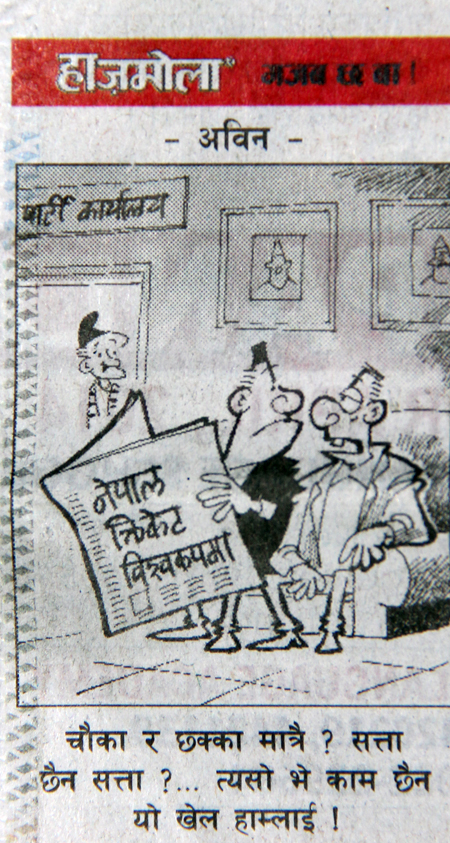 हाज़मोला® मजब छ बा !
- अविन -
पार्टी कार्यालय
नेपाल
क्रिकेट
विश्वकपमा
चौका र छक्का मात्रै ? सत्ता
छैन सत्ता ?... त्यसो भे काम छैन
यो खेल हाम्लाई !